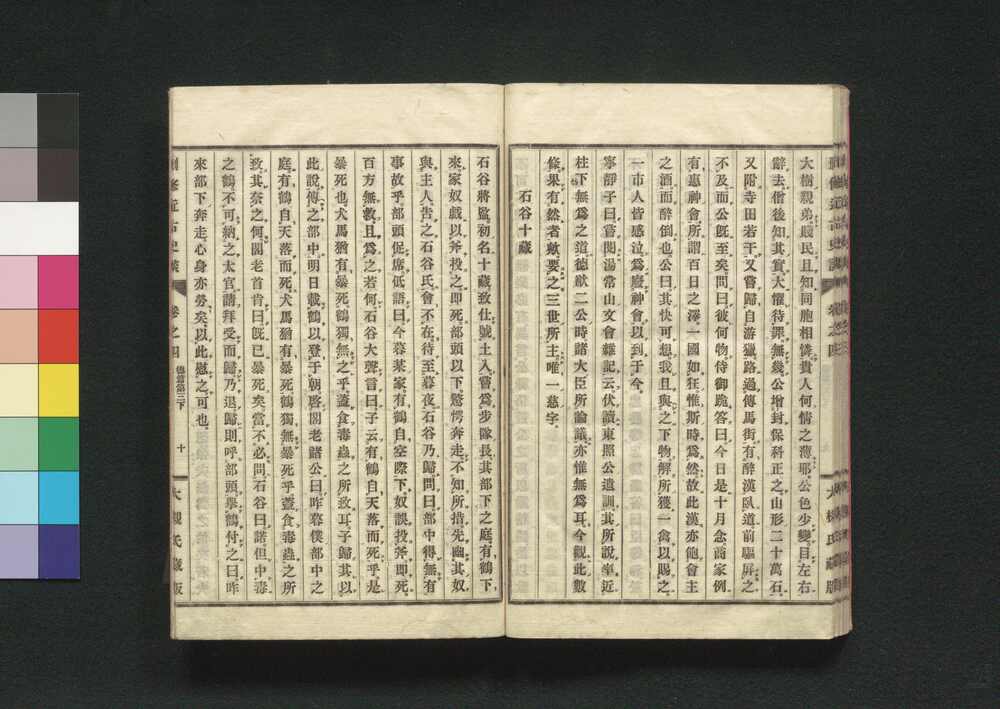 大樹親弟賤民且知同胞相憐貴人何情之薄耶公色少變目左右
辭去僧後知其實大懼待罪無幾公增封保科正之山形二十萬石
又附寺田若干又嘗歸自游獵路過傳馬街有醉漢臥道前驅屏之
不及而公既至矣問曰彼何物侍御跪答曰今日是十月念商家例
有惠神會所謂百日之澤一國如狂惟斯時爲然故此漢亦飽會主
之酒而醉倒也公曰其快可想我且與之下物解所獲一禽以賜之
一市人皆感泣爲廢神會以到于今
寧靜子曰嘗閱湯常山文會雜記云伏讀東照公遺訓其所說率近
柱下無爲之道德猷二公時諸大臣所論議亦惟無爲耳今觀此數
條果有然者歟要之三世所主唯一慈字
石谷十藏
石谷將監初名十藏致仕號土入嘗爲步隊長其部下之庭有鶴下
來家奴戲以斧投之卽死部頭以下驚愕奔走不知所措先幽其奴
與主人告之石谷氏會不在待至暮夜石谷乃歸問曰部中得無有
事故乎部頭促席低語曰今暮某家有鶴自空際下奴誤投斧卽死
百方無救且爲之若何石谷大聲言曰子云有鶴自天落而死乎是
暴死也犬馬猶有暴死鶴獨無之乎蓋食毒蟲之所致耳子歸其以
此說傳之部中明日載鶴以登于朝啓閣老諸公曰昨暮僕部中之
庭有鶴自天落而死犬馬猶有暴死鶴獨無暴死乎蓋食毒蟲之所
致其奈之何閣老首肯曰既已暴死矣當不必問石谷曰諾但中毒
之鶴不可納之太官請拜受而歸乃退歸則呼部頭擧鶴付之曰昨
來部下奔走心身亦勞矣以此慰之可也
卷之四 德篇第三下 十 大槻氏藏版